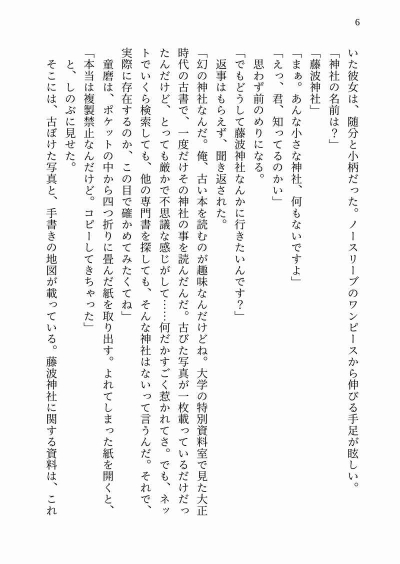 6
いた彼女は、随分と小柄だった。ノースリーブのワンピースから伸びる手足が眩しい。
「神社の名前は？」
「藤波神社」
「まぁ。あんな小さな神社、何もないですよ」
「えっ、君、知ってるのかい」
思わず前のめりになる。
「でもどうして藤波神社なんかに行きたいんです？」
返事はもらえず、聞き返された。
「幻の神社なんだ。俺、古い本を読むのが趣味なんだけどね。大学の特別資料室で見た大正
時代の古書で、一度だけその神社の事を読んだんだ。古びた写真が一枚載っているだけだっ
たんだけど、とっても厳かで不思議な感じがして……何だかすごく惹かれてさ。でも、ネッ
トでいくら検索しても、他の専門書を探しても、そんな神社はないって言うんだ。それで、
実際に存在するのか、この目で確かめてみたくてね」
童磨は、ポケットの中から四つ折りに畳んだ紙を取り出す。よれてしまった紙を開くと、
「本当は複製禁止なんだけど。コピーしてきちゃった」
と、しのぶに見せた。
そこには、古ぼけた写真と、手書きの地図が載っている。藤波神社に関する資料は、これ